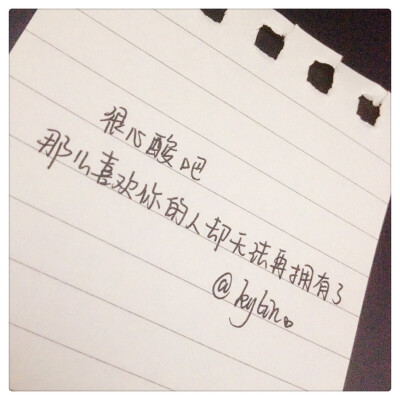 很心酸吧
那么喜欢你的人却无法再拥有了
@kybin。